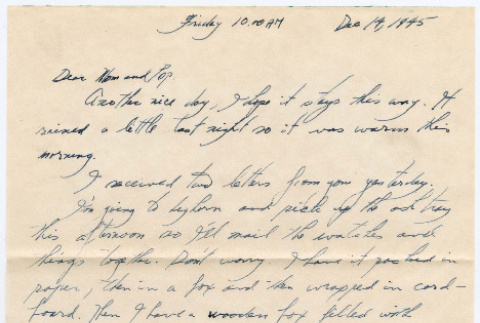 Friday 10:00 AM Dec 14, 1945
Dear Mom and Pop,
Another nice day, I hope it stays this way. It
rained a little last night so it was warm this
morning.
I received two letters from you yesterday.
I'm going to and pick up the ash tray
this afternoon so I'll mail the watches and
things together. Don't worry I have it packed in
paper, then in a box and then wrapped in card-
board. Then I have a wooden box filled with